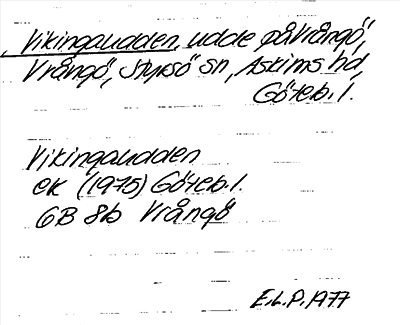 Vikingaudden, udde på Vrångö,
Vrångö, Styrsö sn, Askims hd,
Göteb. l.
Vikingaudden
ek (1975) Göteb. l.
6B 8b Vrångö
E.L.P. 1977